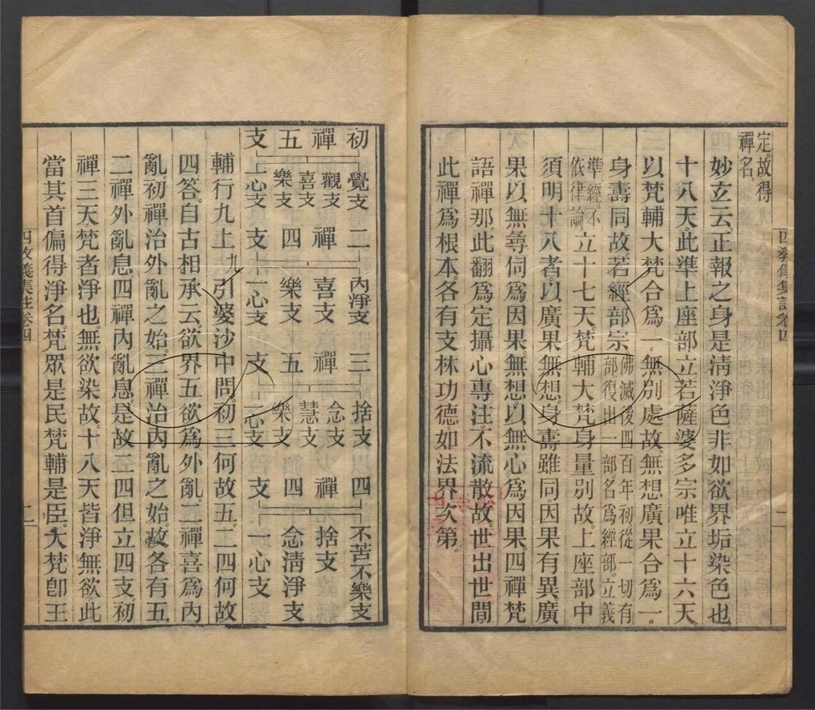 定故得
禪名
妙玄云正報之身是清淨色非如欲界垢染色也
十八天此準上座部立若薩婆多宗唯立十六天
以梵輔大梵合爲一無別處故無想廣果合爲一
身壽同故若經部宗佛滅後四百年初從一切有部復出一部名爲經部立義
準經不依律論立十七天梵輔大梵身量別故上座部中
須明十八者以廣果無想身壽雖同因果有異廣
果以無尋伺爲因果無想以無心爲因果四禪梵
語禪那此翻爲定攝心專注不流散故世出世間
此禪爲根本各有支林功德如法界次第
初禪五支
覺支
觀支
喜支
樂支
一心支
二禪四支
內淨支
喜支
樂支
一心支
三禪五支
捨支
念支
慧支
樂支
一心支
四禪四支
不苦不樂支
捨支
念清淨支
一心支
輔行九上九引婆沙中問初三何故五二四何故
四答自古相承云欲界五欲爲外亂二禪喜爲內
亂初禪治外亂之始三禪治內亂之始故各有五
二禪外亂息四禪內亂息是故二四但立四支初
禪三天梵者淨也無欲染故十八天皆淨無欲此
當其首偏得淨名梵眾是民梵輔是臣大梵卽王
四教儀集註卷四
二